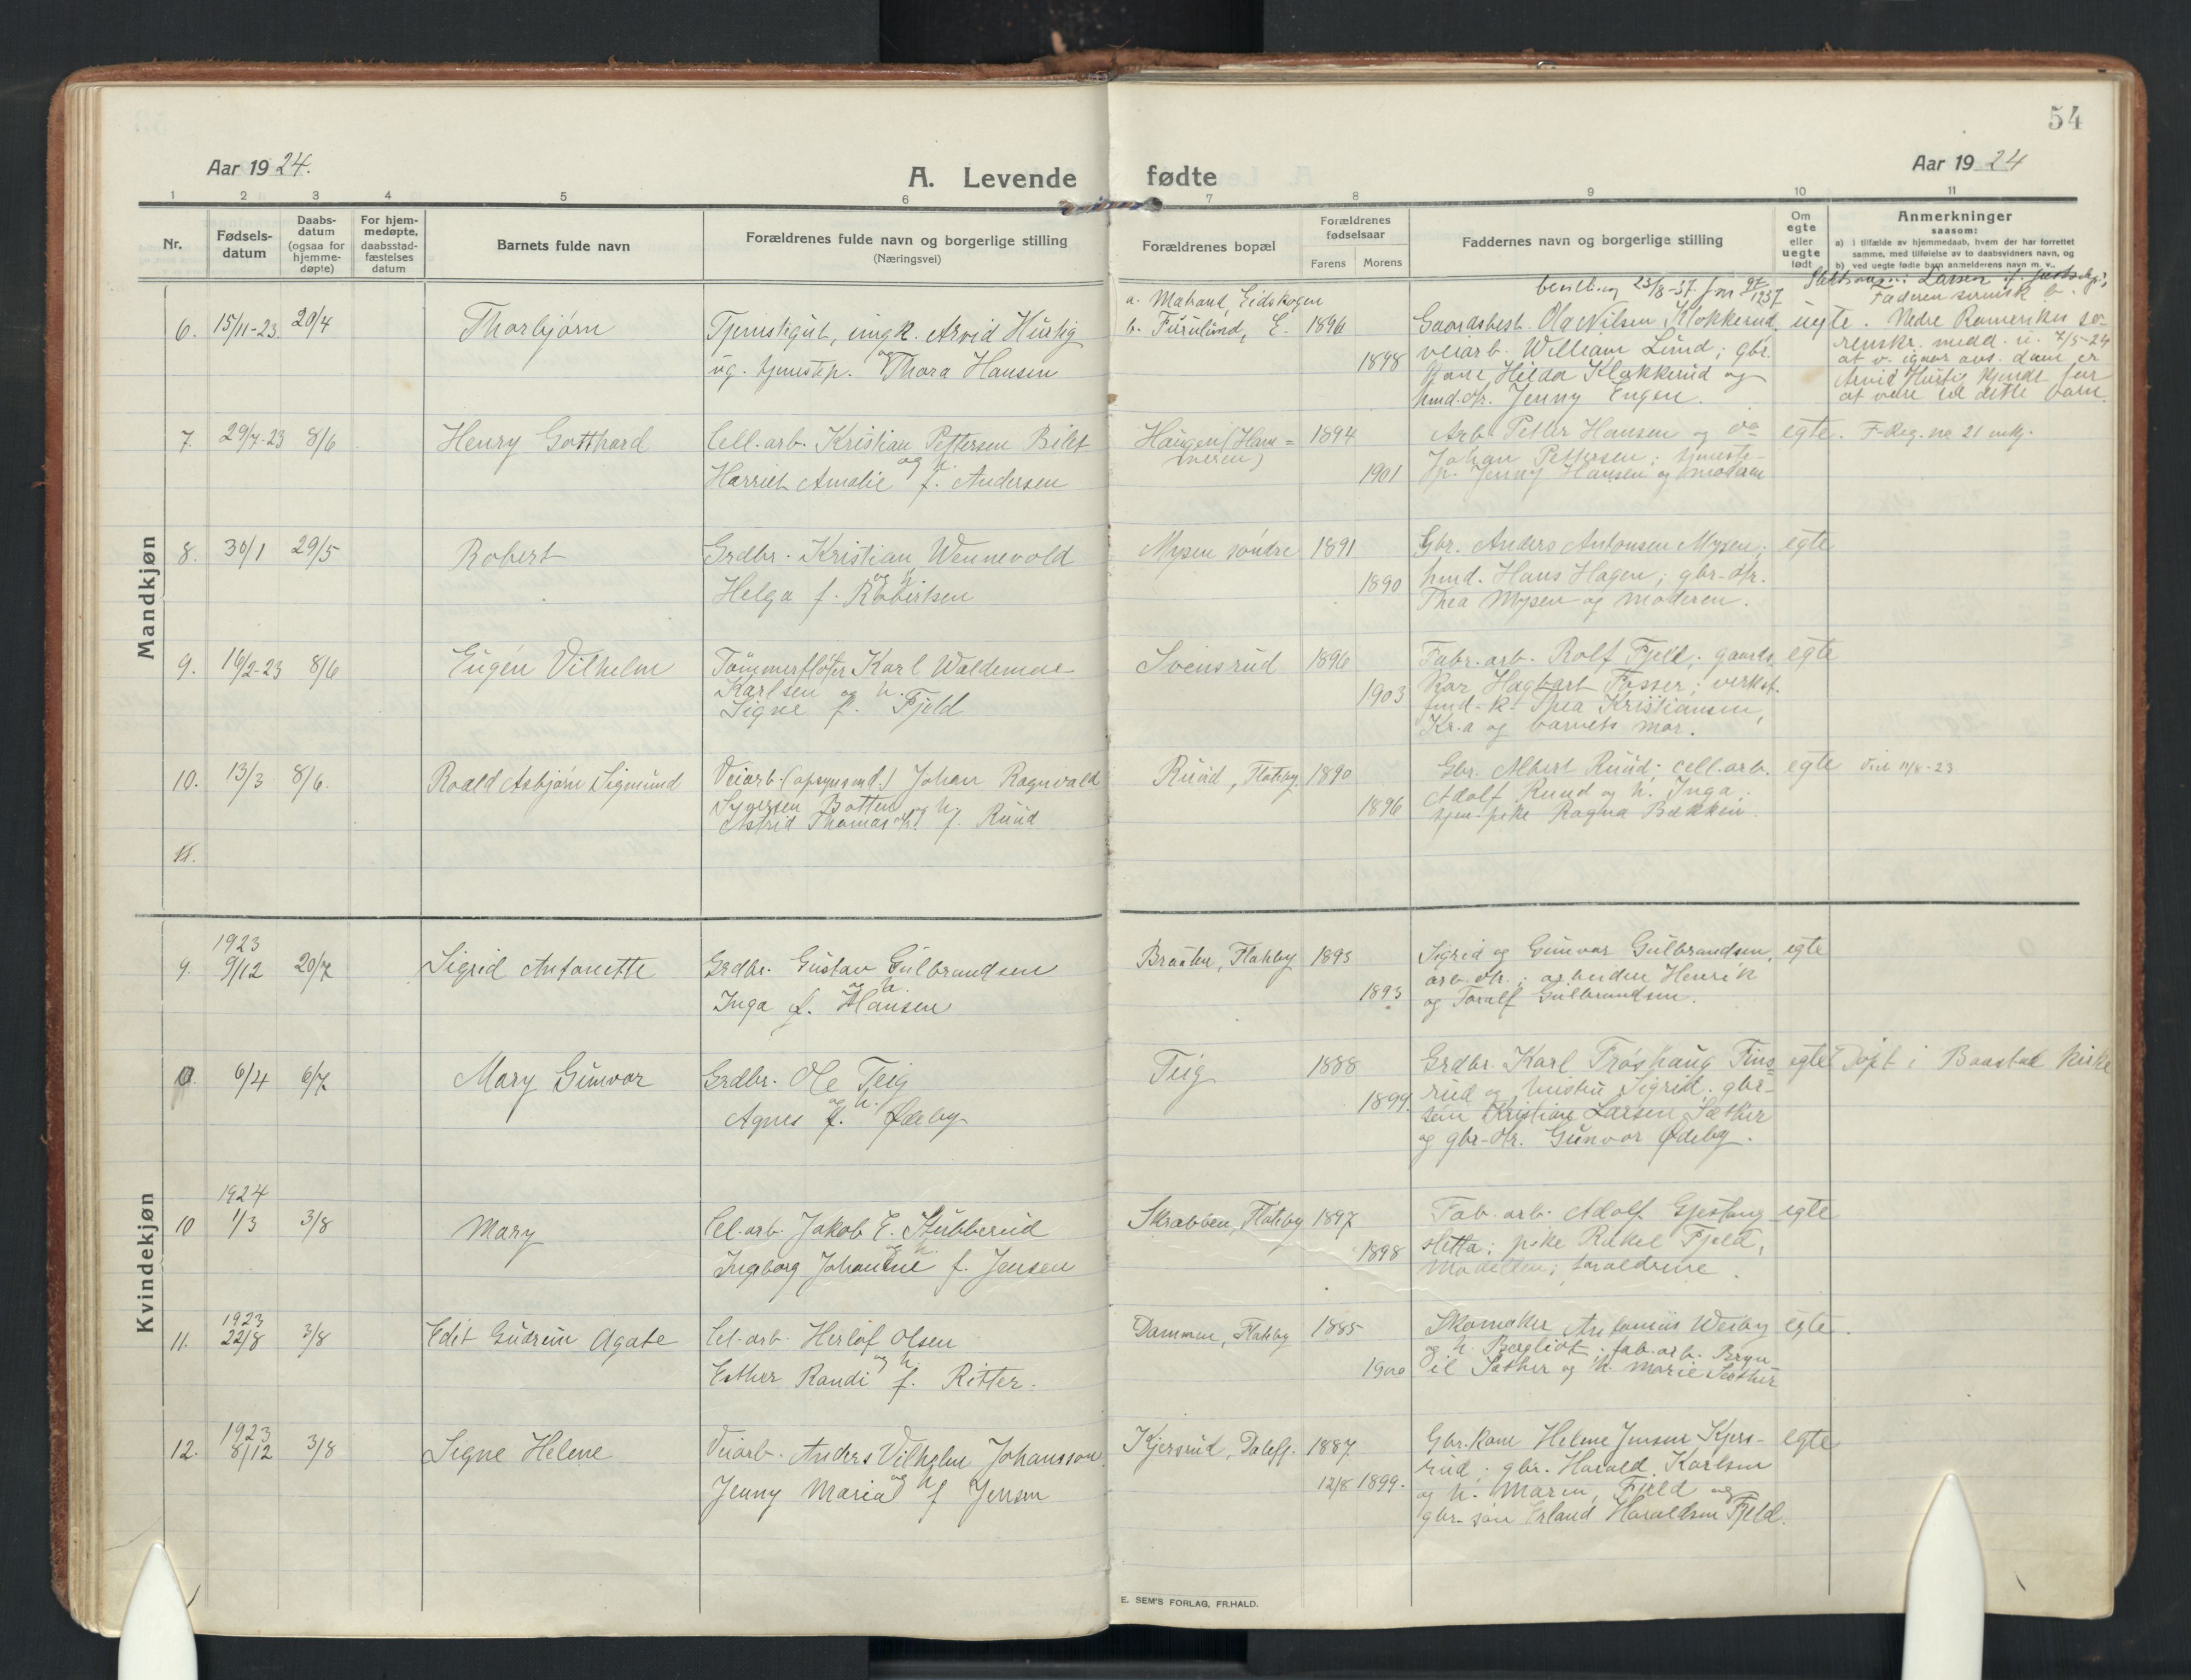 54
Aar 1924.
A. Levende fødte
Aar 1924
1 2 3 4 5 6 7 8 9 10 11
Nr.
Fødsels-
datum
Daabs-
datum
(ogsaa for
hjemme-
døpte)
For hjem-
medøpte,
daabsstad-
fæstelses
datum
Barnets fulde navn
Forældrenes fulde navn og borgerlige stilling
(Næringsvei)
Forældrenes bopæl
Forældrenes
fødselsaar
Farens Morens
Faddernes navn og borgerlige stilling
Om
egte
eller
uegte
født
Anmerkninger
saasom:
a) i tilfælde av hjemmedaab, hvem der har forrettet
samme, med tilføielse av to daabsvidners navn, og
b) ved uegte fødte barn anmelderens navn m. v.
Mandkjøn
6. 15/11-23. 20/4
Thorbjørn
Tjenestegut, ungk. Arvid Hustig
og
ug. tjenestep. Thora Hansen
a. Matrand, Eidskogen
b. Furulund, E.
1896
1898
23/8-37
Gaardsbest. Ola Nilsen Klokkerud,
veiarb. William Lund; gbr.
kone Helda Klokkerud og
hmd.dtr. Jenny Engen.
uegte.
Faderen svensk b.
Nedre Romerikes so-
renskr. medd. u. 7/5-24
at v. igaar avs. dom er
Arvid Hustig kjendt for
at være til dette barn.
7. 29/7-23 8/6
Henry Gotthard
Cell.arb. Kristian Pettersen Bilet
og h.
Harriet Amalie f. Andersen
Haugen (Ham=
meren)
1894
1901
Arb. Petter Hansen og do
Johan Pettersen; tjeneste-
p. Jenny Hansen og moderen
egte.
F-Reg. no 21
8. 30/1 29/5
Robert
Grdbr. Kristian Wennevold
og h.
Helga f. Robertsen
Mysen søndre
1891
1890
Gbr. Anders Antonsen Mysen;
hmd. Hans Hagen; gbr-dtr.
Thea Mysen og moderen.
egte
9. 16/2-23 8/6
Eugen Vilhelm
Tømmerfløter Karl Waldemar
Karlsen og h.
Signe f. Fjeld
Svensrud
1896
1903
Fabr.arb. Rolf Fjeld; gaards
kar Hagbart Fosser; verkst.
fmd.-k. Thea Kristiansen,
Kr.a og barnets mor.
egte
10. 13/3 8/6.
Roald Asbjørn Sigmund
Veiarb. (opsynsmd.) Johan Ragnvald
Syversen Botten og h.
Astrid Thomasdtr. f. Ruud
Ruud, Flateby.
1890
1896
Gbr. Albert Ruud; cell.arb.
Adolf Ruud og h. Inga;
tjen.pike Ragna Bækken.
egte
Viet 11/8-23.
11.
Kvindekjøn
1923
9. 9/12 20/7
Sigrid Antonette
Grdbr. Gustav Gulbrandsen
og h.
Inga f. Hansen
Braaten, Flateby
1893
1893
Sigrid og Gunvor Gulbrandsen,
arb.dtr.; arbeider Henrik
og Toralf Gulbrandsen.
egte
6/4 6/7
Mary Gunvor
Grdbr. Ole Teig
og h.
Agnes f. Ødeby
Teig
1888
1899.
Grdbr. Karl Trøshaug Fins=
rud og hustru Sigrid; gbr-
søn Kristian Larsen Sæther
og gbr-dtr. Gunvor Ødeby.
egte
Døpt i Baastad kirke
1924
10 1/3 3/8
Mary
Cel.arb. Jakob E. Stubberud
og h.
Ingeborg Johanne f. Jensen
Skrabben, Flateby
1897
1898
Fab.arb. Adolf Gjestang
Sletta; pike Rakel Fjeld,
Modellen; foreldrene.
egte
1923
11. 22/8 3/8
Edit Gudrun Agate
Cel.arb. Herlof Olsen
og h.
Esther Randi f. Ritter.
Dammen, Flateby
1885
1900
Skomaker Antonius Wesby
og h. Bergliot; fab.arb. Bryn-
il Sæther og h. Marie Sæther
egte.
1923
12. 8/12 3/8
Signe Helene
Veiarb. Anders Vilhelm Johansson
og h.
Jenny Maria f. Jensen
Kjersrud, Daleff.
1887.
12/8 1899.
Gbr.kone Helene Jensen Kjers-
rud; gbr. Harald Karlsen
og h. Maren, Fjeld og
gbr-søn Erland Haraldsen Fjeld.
egte
E. SEM'S FORLAG, FR.HALD.